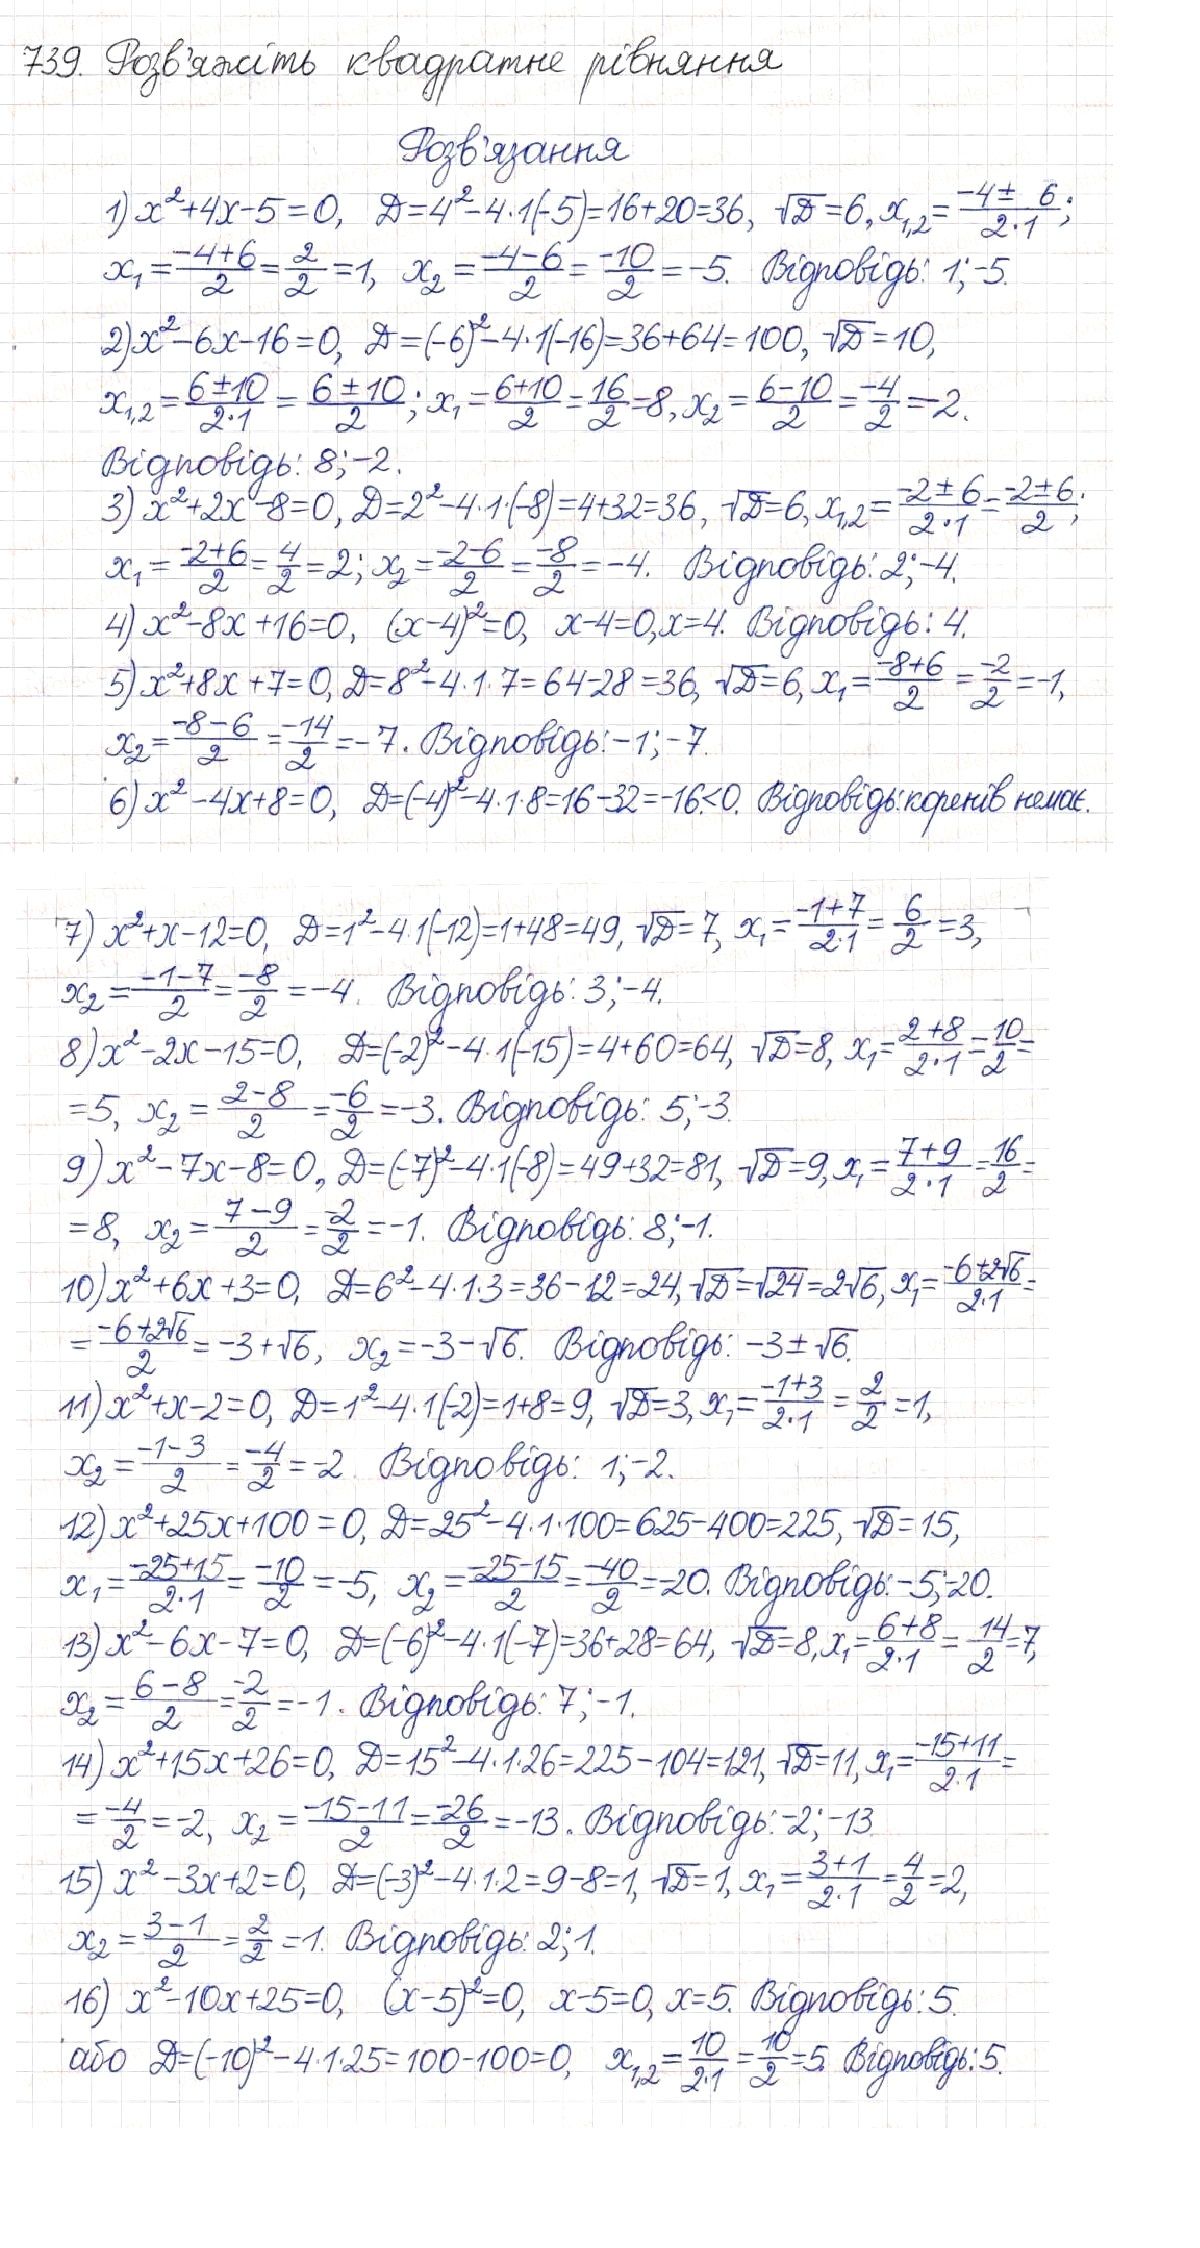 739. Розв'яжіть квадратне рівняння
Розв'язання
1) x²+4x-5=0, D=4²-4·1(-5)=16+20=36, √D=6, x₁,₂=(-4± 6)/(2·1);
x₁=(-4+6)/2=2/2=1, x₂=(-4-6)/2=-10/2=-5. Відповідь: 1;-5.
2) x²-6x-16=0, D=(-6)²-4·1(-16)=36+64=100, √D=10,
x₁,₂=(6±10)/(2·1)=(6±10)/2; x₁=(6+10)/2=16/2=8, x₂=(6-10)/2=-4/2=-2.
Відповідь: 8;-2.
3) x²+2x-8=0, D=2²-4·1·(-8)=4+32=36, √D=6, x₁,₂=(-2±6)/(2·1)=(-2±6)/2;
x₁=(-2+6)/2=4/2=2; x₂=(-2-6)/2=-8/2=-4. Відповідь: 2;-4.
4) x²-8x+16=0, (x-4)²=0, x-4=0, x=4. Відповідь: 4.
5) x²+8x+7=0, D=8²-4·1·7=64-28=36, √D=6, x₁=(-8+6)/2=-2/2=-1,
x₂=(-8-6)/2=-14/2=-7. Відповідь: -1;-7.
6) x²-4x+8=0, D=(-4)²-4·1·8=16-32=-16<0. Відповідь: коренів немає.
7) x²+x-12=0, D=1²-4·1(-12)=1+48=49, √D=7, x₁=(-1+7)/(2·1)=6/2=3,
x₂=(-1-7)/2=-8/2=-4. Відповідь: 3;-4.
8) x²-2x-15=0, D=(-2)²-4·1(-15)=4+60=64, √D=8, x₁=(2+8)/(2·1)=10/2=
=5, x₂=(2-8)/2=-6/2=-3. Відповідь: 5;-3.
9) x²-7x-8=0, D=(-7)²-4·1(-8)=49+32=81, √D=9, x₁=(7+9)/(2·1)=16/2=
=8, x₂=(7-9)/2=-2/2=-1. Відповідь: 8;-1.
10) x²+6x+3=0, D=6²-4·1·3=36-12=24, √D=√24=2√6, x₁=(-6+2√6)/(2·1)=
=(-6+2√6)/2=-3+√6, x₂=-3-√6. Відповідь: -3±√6.
11) x²+x-2=0, D=1²-4·1(-2)=1+8=9, √D=3, x₁=(-1+3)/(2·1)=2/2=1,
x₂=(-1-3)/2=-4/2=-2. Відповідь: 1;-2.
12) x²+25x+100=0, D=25²-4·1·100=625-400=225, √D=15,
x₁=(-25+15)/(2·1)=-10/2=-5, x₂=(-25-15)/2=-40/2=-20. Відповідь: -5;-20.
13) x²-6x-7=0, D=(-6)²-4·1(-7)=36+28=64, √D=8, x₁=(6+8)/(2·1)=14/2=7,
x₂=(6-8)/2=-2/2=-1. Відповідь: 7;-1.
14) x²+15x+26=0, D=15²-4·1·26=225-104=121, √D=11, x₁=(-15+11)/(2·1)=
=-4/2=-2, x₂=(-15-11)/2=-26/2=-13. Відповідь: -2;-13
15) x²-3x+2=0, D=(-3)²-4·1·2=9-8=1, √D=1, x₁=(3+1)/(2·1)=4/2=2,
x₂=(3-1)/2=2/2=1. Відповідь: 2;1.
16) x²-10x+25=0, (x-5)²=0, x-5=0, x=5. Відповідь: 5.
або D=(-10)²-4·1·25=100-100=0, x₁,₂=10/(2·1)=10/2=5. Відповідь: 5.